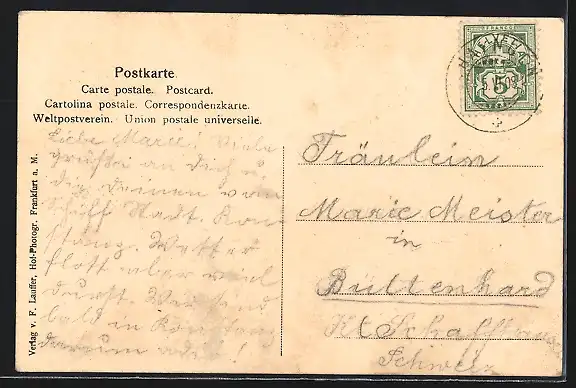 Postkarte.
Carte postale. Postcard.
Cartolina postale. Correspondenzkarte.
Weltpostverein. Union postale universelle.
Liebe Marie! Viele
grüße an Dich u.
die Deinen vom
Schiff Stadt Kon
stanz. Wetter
flott aber viel
durst. Wir sind
bald in Konstanz
darum ade!
Fräulein
Marie Meister
in
Büttenhard
Kt Schaffhausen
Schweiz
Verlag v. F. Lauffer, Hof-Photogr. Frankfurt a. M.
FRANCO
HELVETIA
5